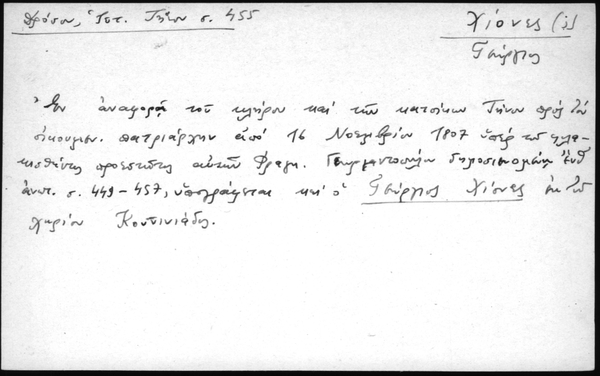 Δρόσου, Ἱστ. Τήνου σ. 455
Χιόνες (ὁ)
Γεώργιος
Ἐν ἀναφορᾷ τοῦ κλήρου καὶ τῶν κατοίκων Τήνου πρὸς τὸν
οἰκουμεν. πατριάρχην ἀπὸ 16 Νοεμβρίου 1807 ὑπὲρ τοῦ φυλα-
κισθέντος προεστῶτος αὐτῶν Φραγκ. δημοσιευομένῃ ἔνθ'
ἀνωτ. σ. 449-457, ὑπογράφεται καὶ ὁ Γεώργιος Χιόνες ἐκ τοῦ
χωρίου Κουτινιάδος.